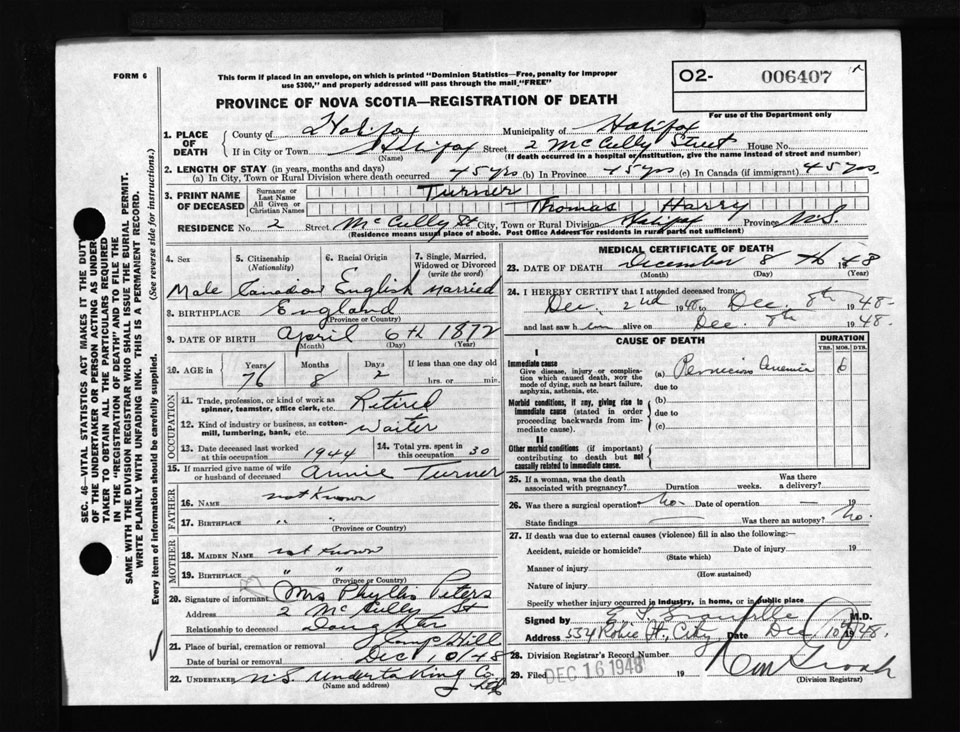 FORM 6
This form if placed in an envelope, on which is printed "Dominion Statistics—Free, penalty for improper
use $300," and properly addressed will pass through the mail "FREE"
O2- 006407
PROVINCE OF NOVA SCOTIA—REGISTRATION OF DEATH
For use of the Department only
1. PLACE OF DEATH
County of Halifax Municipality of Halifax
If in City or Town Halifax Street 2 McCully Street House No.
(Name) (If death occurred in a hospital or institution, give the name instead of street and number)
2. LENGTH OF STAY (in years, months and days)
(a) In City, Town or Rural Division where death occurred 45 yrs (b) In Province 45 yrs (c) In Canada (if immigrant) 45 yrs
3. PRINT NAME OF DECEASED
Surname or Last Name Turner
All Given or Christian Names Thomas Harry
RESIDENCE No. 2 Street McCully St City, Town or Rural Division Halifax Province N.S.
(Residence means usual place of abode. Post Office Address for residents in rural parts not sufficient)
4. Sex
Male
5. Citizenship (Nationality)
Canadian
6. Racial Origin
English
7. Single, Married, Widowed or Divorced (write the word)
Married
8. BIRTHPLACE England
(Province or Country)
9. DATE OF BIRTH April 6th 1872
(Month) (Day) (Year)
10. AGE in
Years Months Days If less than one day old
76 8 2 hrs. or min.
OCCUPATION
11. Trade, profession, or kind of work as spinner, teamster, office clerk, etc. Retired
12. Kind of industry or business, as cotton-mill, lumbering, bank, etc. Waiter
13. Date deceased last worked at this occupation 1944
14. Total yrs. spent in this occupation 30
15. If married give name of wife or husband of deceased Annie Turner
FATHER
16. NAME not Known
17. BIRTHPLACE " "
(Province or Country)
MOTHER
18. MAIDEN NAME not Known
19. BIRTHPLACE " "
(Province or Country)
20. Signature of informant Mrs Phyllis Peters
Address 2 McCully St
Relationship to deceased Daughter
21. Place of burial, cremation or removal Camp Hill
Date of burial or removal Dec 10/48
22. UNDERTAKER N.S. Undertaking Co
(Name and address)
MEDICAL CERTIFICATE OF DEATH
23. DATE OF DEATH December 8th 1948
(Month) (Day) (Year)
24. I HEREBY CERTIFY that I attended deceased from:
Dec. 2nd 1948 to Dec. 8th 1948
and last saw him alive on Dec. 8th 1948.
CAUSE OF DEATH
DURATION
YRS. MOS. DYS.
I
Immediate cause
Give disease, injury or complication which caused death, not the mode of dying, such as heart failure, asphyxia, asthenia, etc.
(a) Pernicious Anemia 6
due to
Morbid conditions, if any, giving rise to immediate cause (stated in order proceeding backwards from immediate cause).
(b)
due to
(c)
II
Other morbid conditions (if important) contributing to death but not causally related to immediate cause.
25. If a woman, was the death associated with pregnancy? Duration weeks. Was there a delivery?
26. Was there a surgical operation? No. Date of operation — 19
State findings — Was there an autopsy? No.
27. If death was due to external causes (violence) fill in also the following:—
Accident, suicide or homicide? Date of injury 19
(State which)
Manner of injury
(How sustained)
Nature of injury
Specify whether injury occurred in Industry, in home, or in public place
Signed by M.D.
Address 534 Robie St., City Date Dec. 10th 1948.
28. Division Registrar's Record Number
29. Filed DEC 16 1948 19
(Division Registrar)
SEC. 46—VITAL STATISTICS ACT MAKES IT THE DUTY
OF THE UNDERTAKER OR PERSON ACTING AS UNDER-
TAKER TO OBTAIN ALL THE PARTICULARS REQUIRED
IN THE "REGISTRATION OF DEATH" AND TO FILE THE
SAME WITH THE DIVISION REGISTRAR WHO SHALL ISSUE THE BURIAL PERMIT.
WRITE PLAINLY WITH UNFADING INK. THIS IS A PERMANENT RECORD.
Every item of information should be carefully supplied. (See reverse side for instructions.)